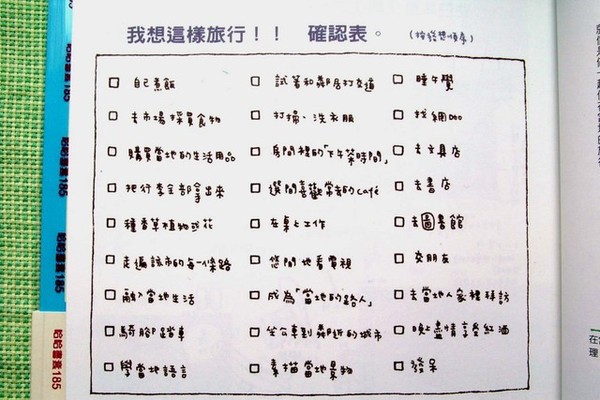 我想這樣旅行！！　確認表。
(按發想順序)
□ 自己煮飯
□ 去市場採買食物
□ 購買當地的生活用品
□ 把行李全部拿出來
□ 種香草植物或花
□ 走遍該市的每一條路
□ 融入當地生活
□ 騎腳踏車
□ 學當地語言
□ 試著和鄰居打交道
□ 打掃、洗衣服
□ 房間裡的「下午茶時間」
□ 選間喜歡常去的Café
□ 在桌上工作
□ 悠閒地看電視
□ 成為「當地的路人」
□ 坐公車到鄰近的城市
□ 素描當地景物
□ 睡午覺
□ 找網咖
□ 去文具店
□ 去書店
□ 去圖書館
□ 交朋友
□ 去當地人家裡拜訪
□ 晚上盡情享受紅酒
□ 發呆
哈哈書盒185
哈哈書盒185
哈哈書盒185
哈哈書盒185